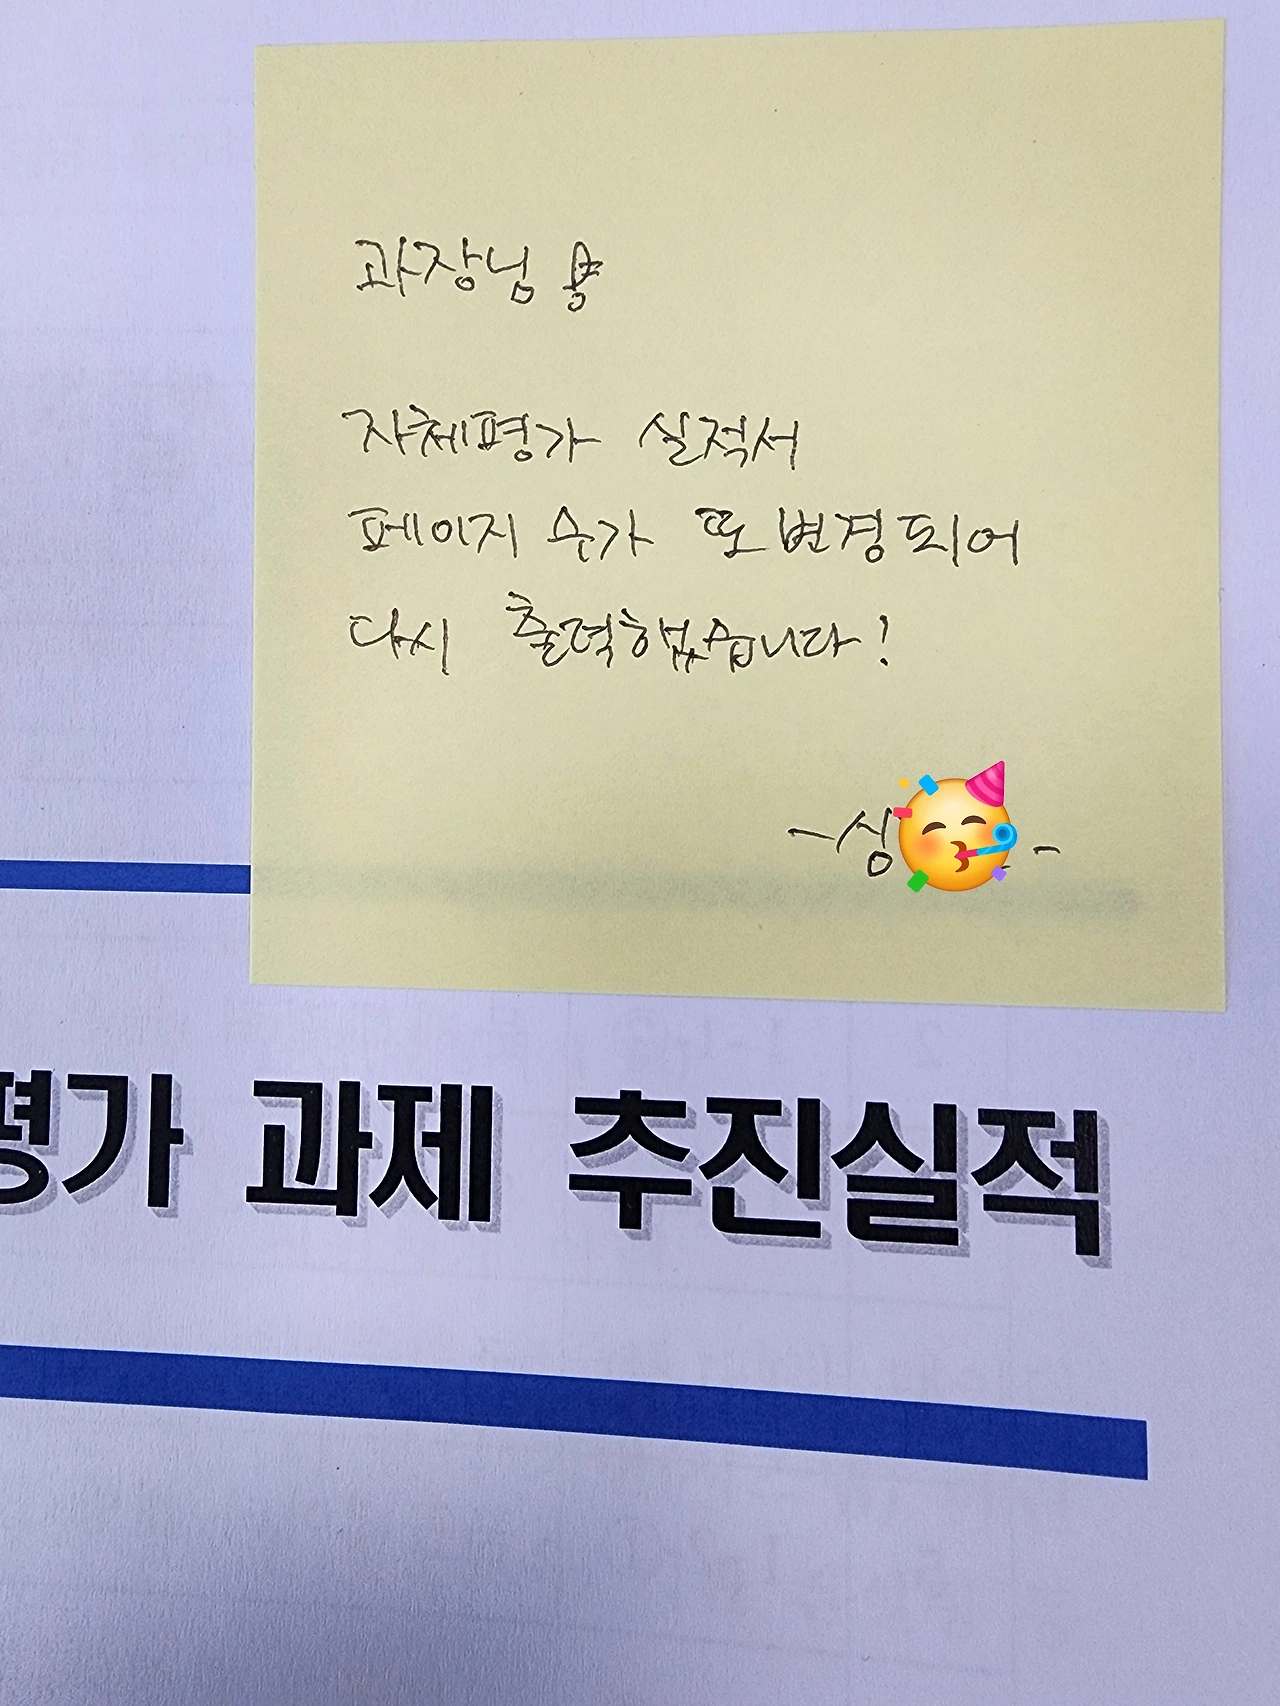 과장님 용
자체평가 실적서
페이지 수가 또 변경되어
다시 출력했습니다!
-싱 -
평가 과제 추진실적